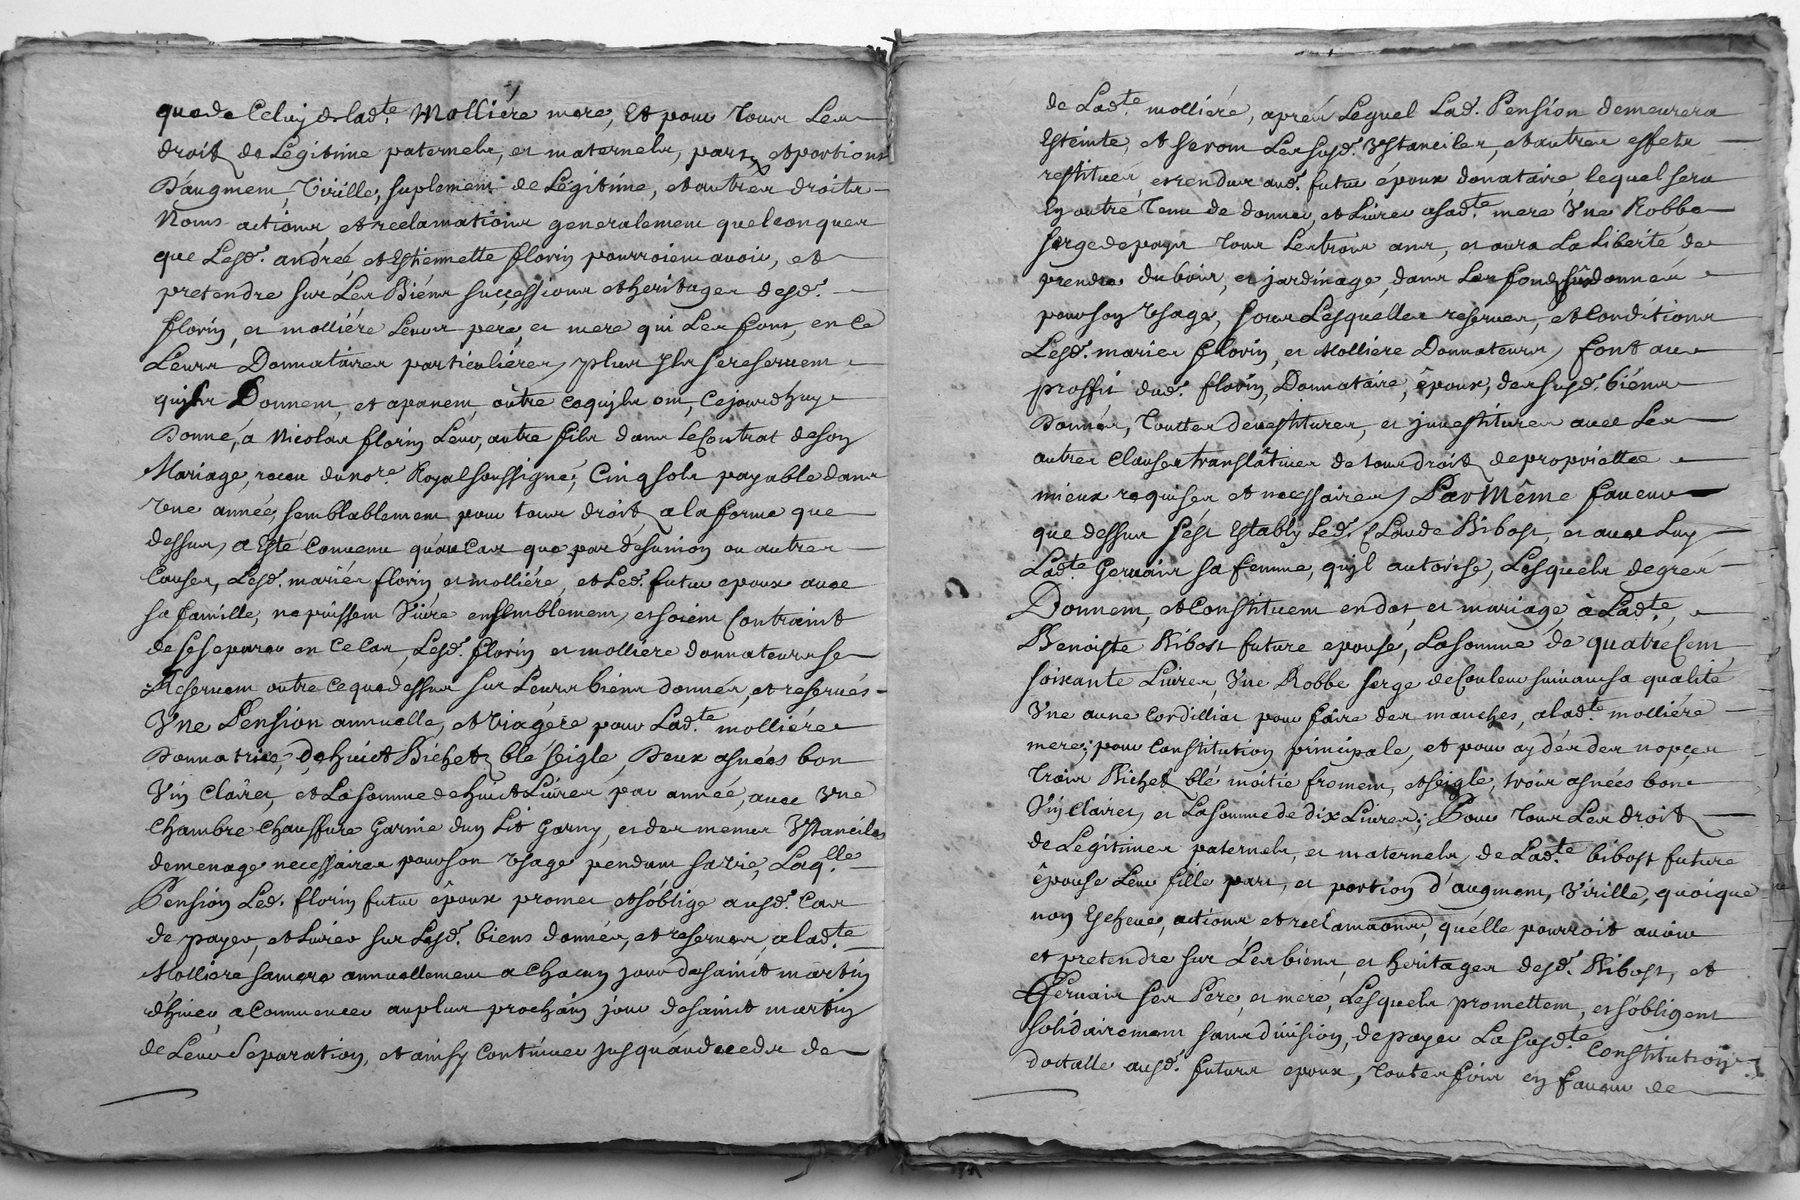 que de Celuy de lad.te Molliére mere, Et pour tous Leurs
droits de Légitime paternels, et maternels, parts et portions
D'augment, Virille, suplement de Légitime, et autres droits
Noms actions, et reclamations generalement quelconques
que Lesd. andreé et Estiennette florin pourroient avoir, et
pretendre sur Les Biéns successions et heritages desd.
florin, et molliére Leurs pere, et mere qui Les font, en ce
Leurs Donnataires particuliéres, plus Ils se reservent
quils Donnent, et apanent, oûtre ce quils ont, Cejourdhuy
Donné, a Nicolas florin Leur, autre fils dans Le Contrat de son
Mariage, receu du no.re Royal soussigné, Cinq sols payable dans
Une année, semblablement pour tous droits a la forme que
dessus, a Esté Convenu qu'au Cas que par désunion ou autres
Causes, Lesd. mariés florin, et molliére, et Led. futur epoux avec
sa famille, ne puissent Vivre ensemblement, et soient Contraint
de se separer en Ce Cas, Lesd. florin et molliere donnateurs se
Reservent outre ce que dessus sur Leurs biens donnés, et reservés
Une Pension annuelle, et Viagére pour Lad.te molliére
Donnatrice, De huict Bichets blé seigle, Deux asnées bon
Vin Clairet, et La somme de huict Livres par année, avec Une
Chambre Chauffure Garnie d'un Lit Garny, et des memes Ustanciles
de menage necessaires pour son Usage pendant sa vie, Laq.lle
Pension Led. florin futur êpoux promet et s'oblige ausd. Cas
de payer, et Livrer sur Lesd. biens donnés, et reserves, a lad.te
Molliere sa mere annuellement a Chacun jour de saint martin
d'hiver, a Commencer au plus prochain jour de saint martin
de Leur Separation, et ainsy Continuer Jusqu'au deceds de
de Lad.te molliére, aprés Lequel Lad. Pension demeurera
Esteinte, et seront Les susd. Ustanciles, et autres effets
restitués, et rendus aud. futur époux donataire, lequel sera
En outre tenu de donner, et Livrer a sad.te mere Une Robbe
serge de pays tous Les trois ans, et aura La Liberté de
prendre du bois, et jardinage, dans Les fonds susdonnés
pour son Usage, sous Lesquelles reserves, et Conditions
Lesd. mariés florin, et Molliere Donnateurs, font au
proffit dud. florin, Donnataire, êpoux, des susd. biéns
Donnés, toutes devestitures, et investitures avec Les
autres Clauses translâtives de tous droits de propriettee
mieux requises et necessaires, Par Même faveur
que dessus s'ést Estably Led. Claude Bibost, et avec Luy
Lad.te Gervais sa femme, qu'jl autorise, Lesquels de gré
Donnent, et Constituent en dot, et mariage, à Lad.te
Benoiste Bibost future epouse, La somme de quatre Cent
soixante Livres, Une Robbe serge de Couleur suivant sa qualité
Une aune Cordilliat pour faire des manches, a lad.te molliére
mere; pour Constitution principale, et pour aydér des nopçes
Trois Bichets blé moitie froment, et seigle, trois asnées bon
Vin Clairet, et La somme de dix Livres; Pour tous Les droits
de Légitimes paternels, et maternels, de Lad.te bibost future
êpouse Leur fille part, et portion d'augment, Virille, quoique
non Escheus, actions, et reclamãons, quélle pourroit avoir
et pretendre sur Lés biens, et heritages desd. Bibost, et
Gervais ses Pere, et mere, Lesquels promettent, et s'obligent
solidairement sans division, de payer La susd.te Constitution
dottalle ausd. futurs epoux, toutes fois en faveur de